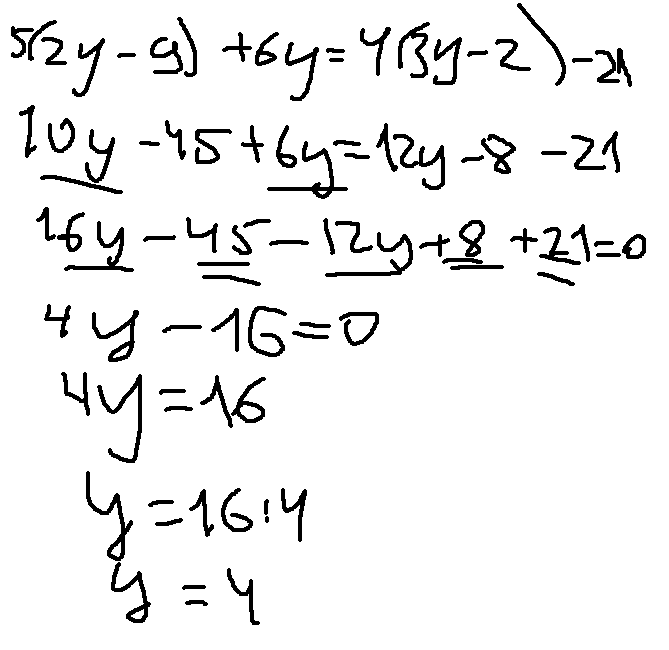 5(2y-9)+6y=4(3y-2)-21
10y-45+6y=12y-8-21
16y-45-12y+8+21=0
4y-16=0
4y=16
y=16:4
y=4